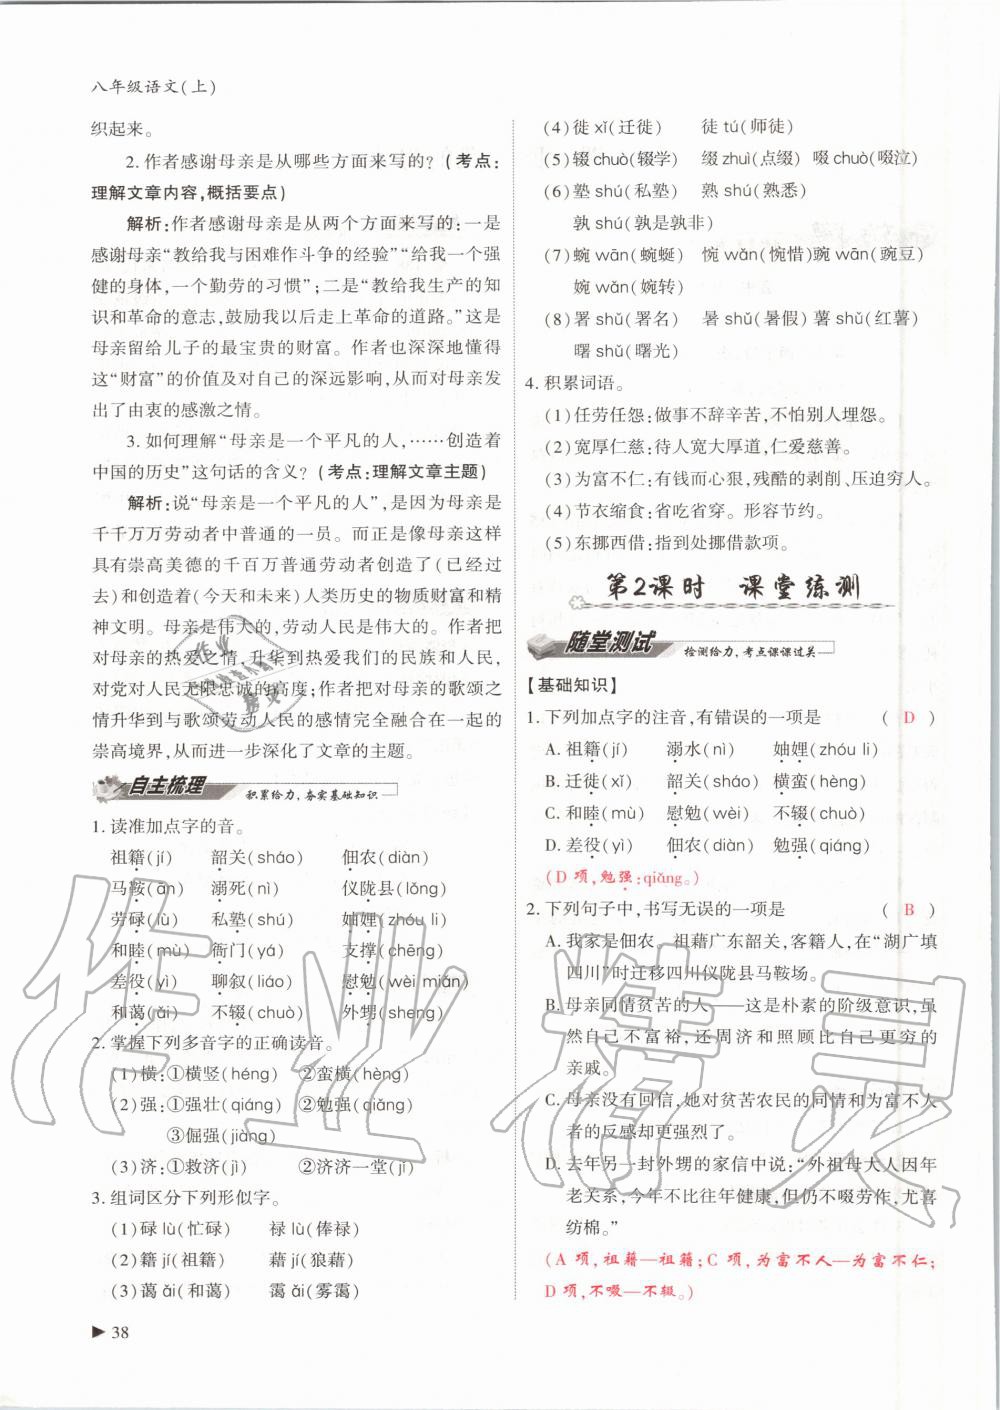 八年级语文(上)
织起来。
2. 作者感谢母亲是从哪些方面来写的？(考点:
理解文章内容,概括要点)
解析:作者感谢母亲是从两个方面来写的:一是
感谢母亲“教给我与困难作斗争的经验”“给我一个强
健的身体,一个勤劳的习惯”;二是“教给我生产的知
识和革命的意志,鼓励我以后走上革命的道路。”这是
母亲留给儿子的最宝贵的财富。作者也深深地懂得
这“财富”的价值及对自己的深远影响,从而对母亲发
出了由衷的感激之情。
3. 如何理解“母亲是一个平凡的人,……创造着
中国的历史”这句话的含义？(考点:理解文章主题)
解析:说“母亲是一个平凡的人”,是因为母亲是
千千万万劳动者中普通的一员。而正是像母亲这样
具有崇高美德的千百万普通劳动者创造了(已经过
去)和创造着(今天和未来)人类历史的物质财富和精
神文明。母亲是伟大的,劳动人民是伟大的。作者把
对母亲的热爱之情,升华到热爱我们的民族和人民,
对党对人民无限忠诚的高度;作者把对母亲的歌颂之
情升华到与歌颂劳动人民的感情完全融合在一起的
崇高境界,从而进一步深化了文章的主题。
自主梳理 积累给力,夯实基础知识
1. 读准加点字的音。
祖籍(jí) 韶关(sháo) 佃农(diàn)
马鞍(ān) 溺死(nì) 仪陇县(lǒng)
劳碌(lù) 私塾(shú) 妯娌(zhóu li)
和睦(mù) 衙门(yá) 支撑(chēng)
差役(yì) 聊叙(liáo) 慰勉(wèi miǎn)
和蔼(ǎi) 不辍(chuò) 外甥(sheng)
2. 掌握下列多音字的正确读音。
(1)横:①横竖(héng) ②蛮横(hèng)
(2)强:①强壮(qiáng) ②勉强(qiǎng)
③倔强(jiàng)
(3)济:①救济(jì) ②济济一堂(jǐ)
3. 组词区分下列形似字。
(1)碌 lù(忙碌) 禄 lù(俸禄)
(2)籍 jí(祖籍) 藉 jí(狼藉)
(3)蔼 ǎi(和蔼) 霭 ǎi(雾霭)
38
(4)徙 xǐ(迁徙) 徒 tú(师徒)
(5)辍 chuò(辍学) 缀 zhuì(点缀) 啜 chuò(啜泣)
(6)塾 shú(私塾) 熟 shú(熟悉)
孰 shú(孰是孰非)
(7)蜿 wān(蜿蜒) 惋 wǎn(惋惜)豌 wān(豌豆)
婉 wǎn(婉转)
(8)署 shǔ(署名) 暑 shǔ(暑假) 薯 shǔ(红薯)
曙 shǔ(曙光)
4. 积累词语。
(1)任劳任怨:做事不辞辛苦,不怕别人埋怨。
(2)宽厚仁慈:待人宽大厚道,仁爱慈善。
(3)为富不仁:有钱而心狠,残酷的剥削、压迫穷人。
(4)节衣缩食:省吃省穿。形容节约。
(5)东挪西借:指到处挪借款项。
第2课时 课堂练测
随堂测试 检测给力,考点课课过关
【基础知识】
1. 下列加点字的注音,有错误的一项是 ( D )
A. 祖籍(jí) 溺水(nì) 妯娌(zhóu li)
B. 迁徙(xǐ) 韶关(sháo) 横蛮(hèng)
C. 和睦(mù) 慰勉(wèi) 不辍(chuò)
D. 差役(yì) 佃农(diàn) 勉强(qiáng)
(D 项,勉强:qiǎng。)
2. 下列句子中,书写无误的一项是 ( B )
A. 我家是佃农。祖藉广东韶关,客籍人,在“湖广填
四川”时迁移四川仪陇县马鞍场。
B. 母亲同情贫苦的人——这是朴素的阶级意识,虽
然自己不富裕,还周济和照顾比自己更穷的
亲戚。
C. 母亲没有回信,她对贫苦农民的同情和为富不人
的反感却更强烈了。
D. 去年另一封外甥的家信中说:“外祖母大人因年
老关系,今年不比往年健康,但仍不啜劳作,尤喜
纺棉。”
(A 项,祖藉—祖籍;C 项,为富不人—为富不仁;
D 项,不啜—不辍。)
作业精灵